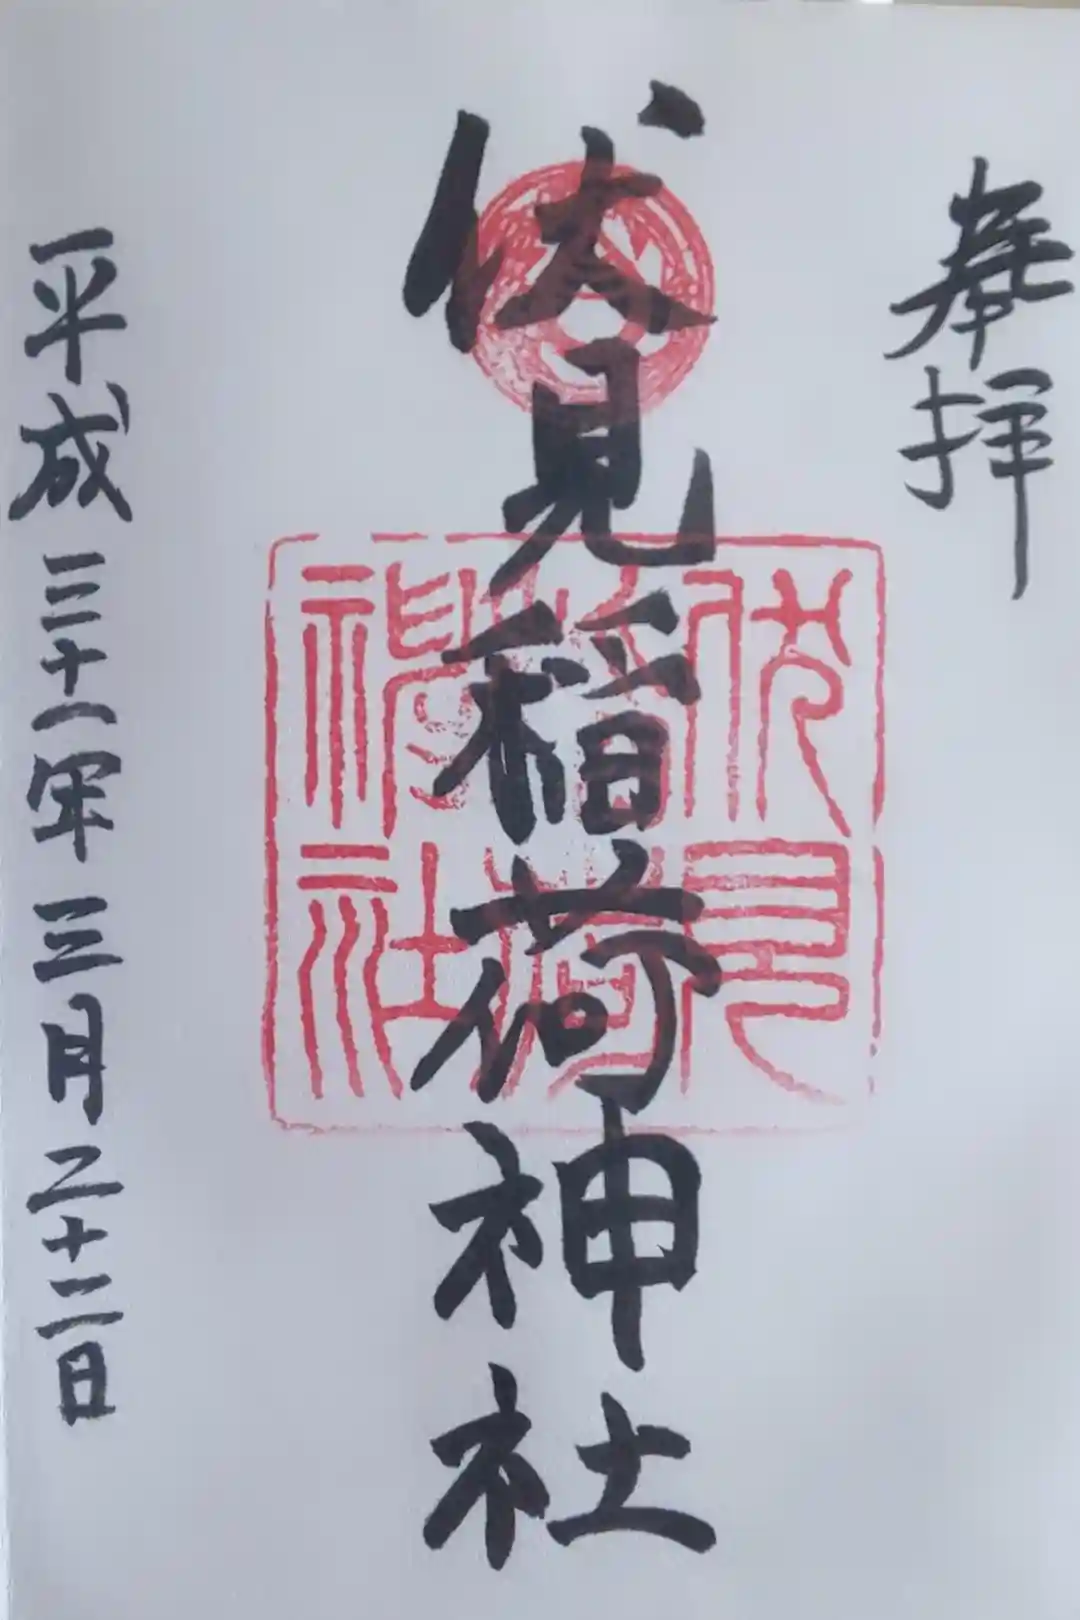 奉拝
伏見稲荷神社
伏見
稲荷
神社
平成三十一年三月二十二日